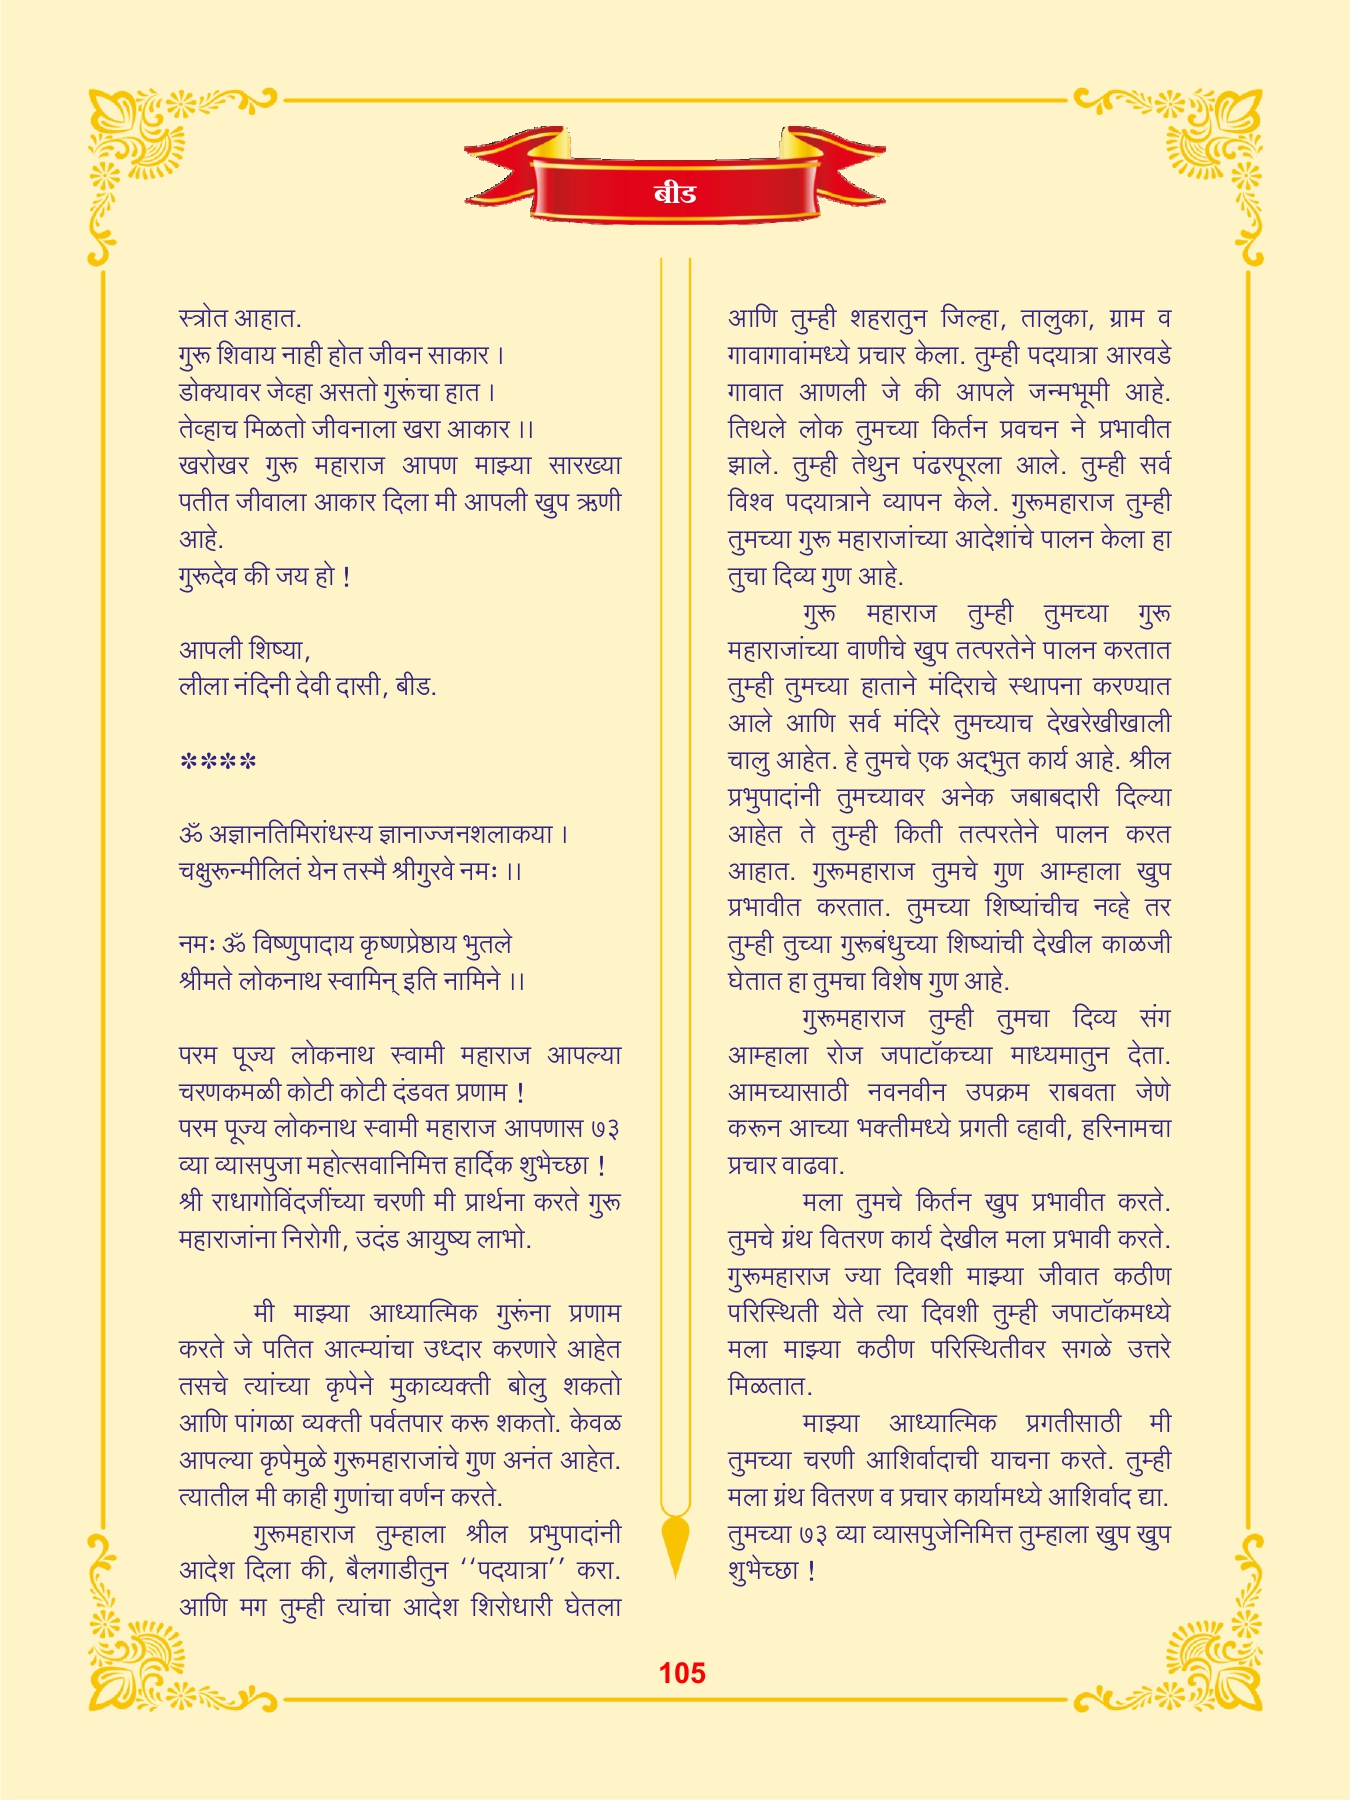 बीड
स्त्रोत आहात.
गुरू शिवाय नाही होत जीवन साकार ।
डोक्यावर जेव्हा असतो गुरूंचा हात ।
तेव्हाच मिळतो जीवनाला खरा आकार ।।
खरोखर गुरू महाराज आपण माझ्या सारख्या
पतीत जीवाला आकार दिला मी आपली खुप ऋणी
आहे.
गुरूदेव की जय हो !
आपली शिष्या,
लीला नंदिनी देवी दासी, बीड.
****
ॐ अज्ञानतिमिरांधस्य ज्ञानाज्जनशलाकया ।
चक्षुरून्मीलितं येन तस्मै श्रीगुरवे नमः ।।
नमः ॐ विष्णुपादाय कृष्णप्रेष्ठाय भुतले
श्रीमते लोकनाथ स्वामिन् इति नामिने ।।
परम पूज्य लोकनाथ स्वामी महाराज आपल्या
चरणकमळी कोटी कोटी दंडवत प्रणाम !
परम पूज्य लोकनाथ स्वामी महाराज आपणास ७३
व्या व्यासपुजा महोत्सवानिमित्त हार्दिक शुभेच्छा !
श्री राधागोविंदजींच्या चरणी मी प्रार्थना करते गुरू
महाराजांना निरोगी, उदंड आयुष्य लाभो.
मी माझ्या आध्यात्मिक गुरूंना प्रणाम
करते जे पतित आत्म्यांचा उध्दार करणारे आहेत
तसचे त्यांच्या कृपेने मुकाव्यक्ती बोलु शकतो
आणि पांगळा व्यक्ती पर्वतपार करू शकतो. केवळ
आपल्या कृपेमुळे गुरूमहाराजांचे गुण अनंत आहेत.
त्यातील मी काही गुणांचा वर्णन करते.
गुरूमहाराज तुम्हाला श्रील प्रभुपादांनी
आदेश दिला की, बैलगाडीतुन ‘‘पदयात्रा’’ करा.
आणि मग तुम्ही त्यांचा आदेश शिरोधारी घेतला
आणि तुम्ही शहरातुन जिल्हा, तालुका, ग्राम व
गावागावांमध्ये प्रचार केला. तुम्ही पदयात्रा आरवडे
गावात आणली जे की आपले जन्मभूमी आहे.
तिथले लोक तुमच्या किर्तन प्रवचन ने प्रभावीत
झाले. तुम्ही तेथुन पंढरपूरला आले. तुम्ही सर्व
विश्व पदयात्राने व्यापन केले. गुरूमहाराज तुम्ही
तुमच्या गुरू महाराजांच्या आदेशांचे पालन केला हा
तुचा दिव्य गुण आहे.
गुरू महाराज तुम्ही तुमच्या गुरू
महाराजांच्या वाणीचे खुप तत्परतेने पालन करतात
तुम्ही तुमच्या हाताने मंदिराचे स्थापना करण्यात
आले आणि सर्व मंदिरे तुमच्याच देखरेखीखाली
चालु आहेत. हे तुमचे एक अद्‌भुत कार्य आहे. श्रील
प्रभुपादांनी तुमच्यावर अनेक जबाबदारी दिल्या
आहेत ते तुम्ही किती तत्परतेने पालन करत
आहात. गुरूमहाराज तुमचे गुण आम्हाला खुप
प्रभावीत करतात. तुमच्या शिष्यांचीच नव्हे तर
तुम्ही तुच्या गुरूबंधुच्या शिष्यांची देखील काळजी
घेतात हा तुमचा विशेष गुण आहे.
गुरूमहाराज तुम्ही तुमचा दिव्य संग
आम्हाला रोज जपाटॉकच्या माध्यमातुन देता.
आमच्यासाठी नवनवीन उपक्रम राबवता जेणे
करून आच्या भक्तीमध्ये प्रगती व्हावी, हरिनामचा
प्रचार वाढवा.
मला तुमचे किर्तन खुप प्रभावीत करते.
तुमचे ग्रंथ वितरण कार्य देखील मला प्रभावी करते.
गुरूमहाराज ज्या दिवशी माझ्या जीवात कठीण
परिस्थिती येते त्या दिवशी तुम्ही जपाटॉकमध्ये
मला माझ्या कठीण परिस्थितीवर सगळे उत्तरे
मिळतात.
माझ्या आध्यात्मिक प्रगतीसाठी मी
तुमच्या चरणी आशिर्वादाची याचना करते. तुम्ही
मला ग्रंथ वितरण व प्रचार कार्यामध्ये आशिर्वाद द्या.
तुमच्या ७३ व्या व्यासपुजेनिमित्त तुम्हाला खुप खुप
शुभेच्छा !
105